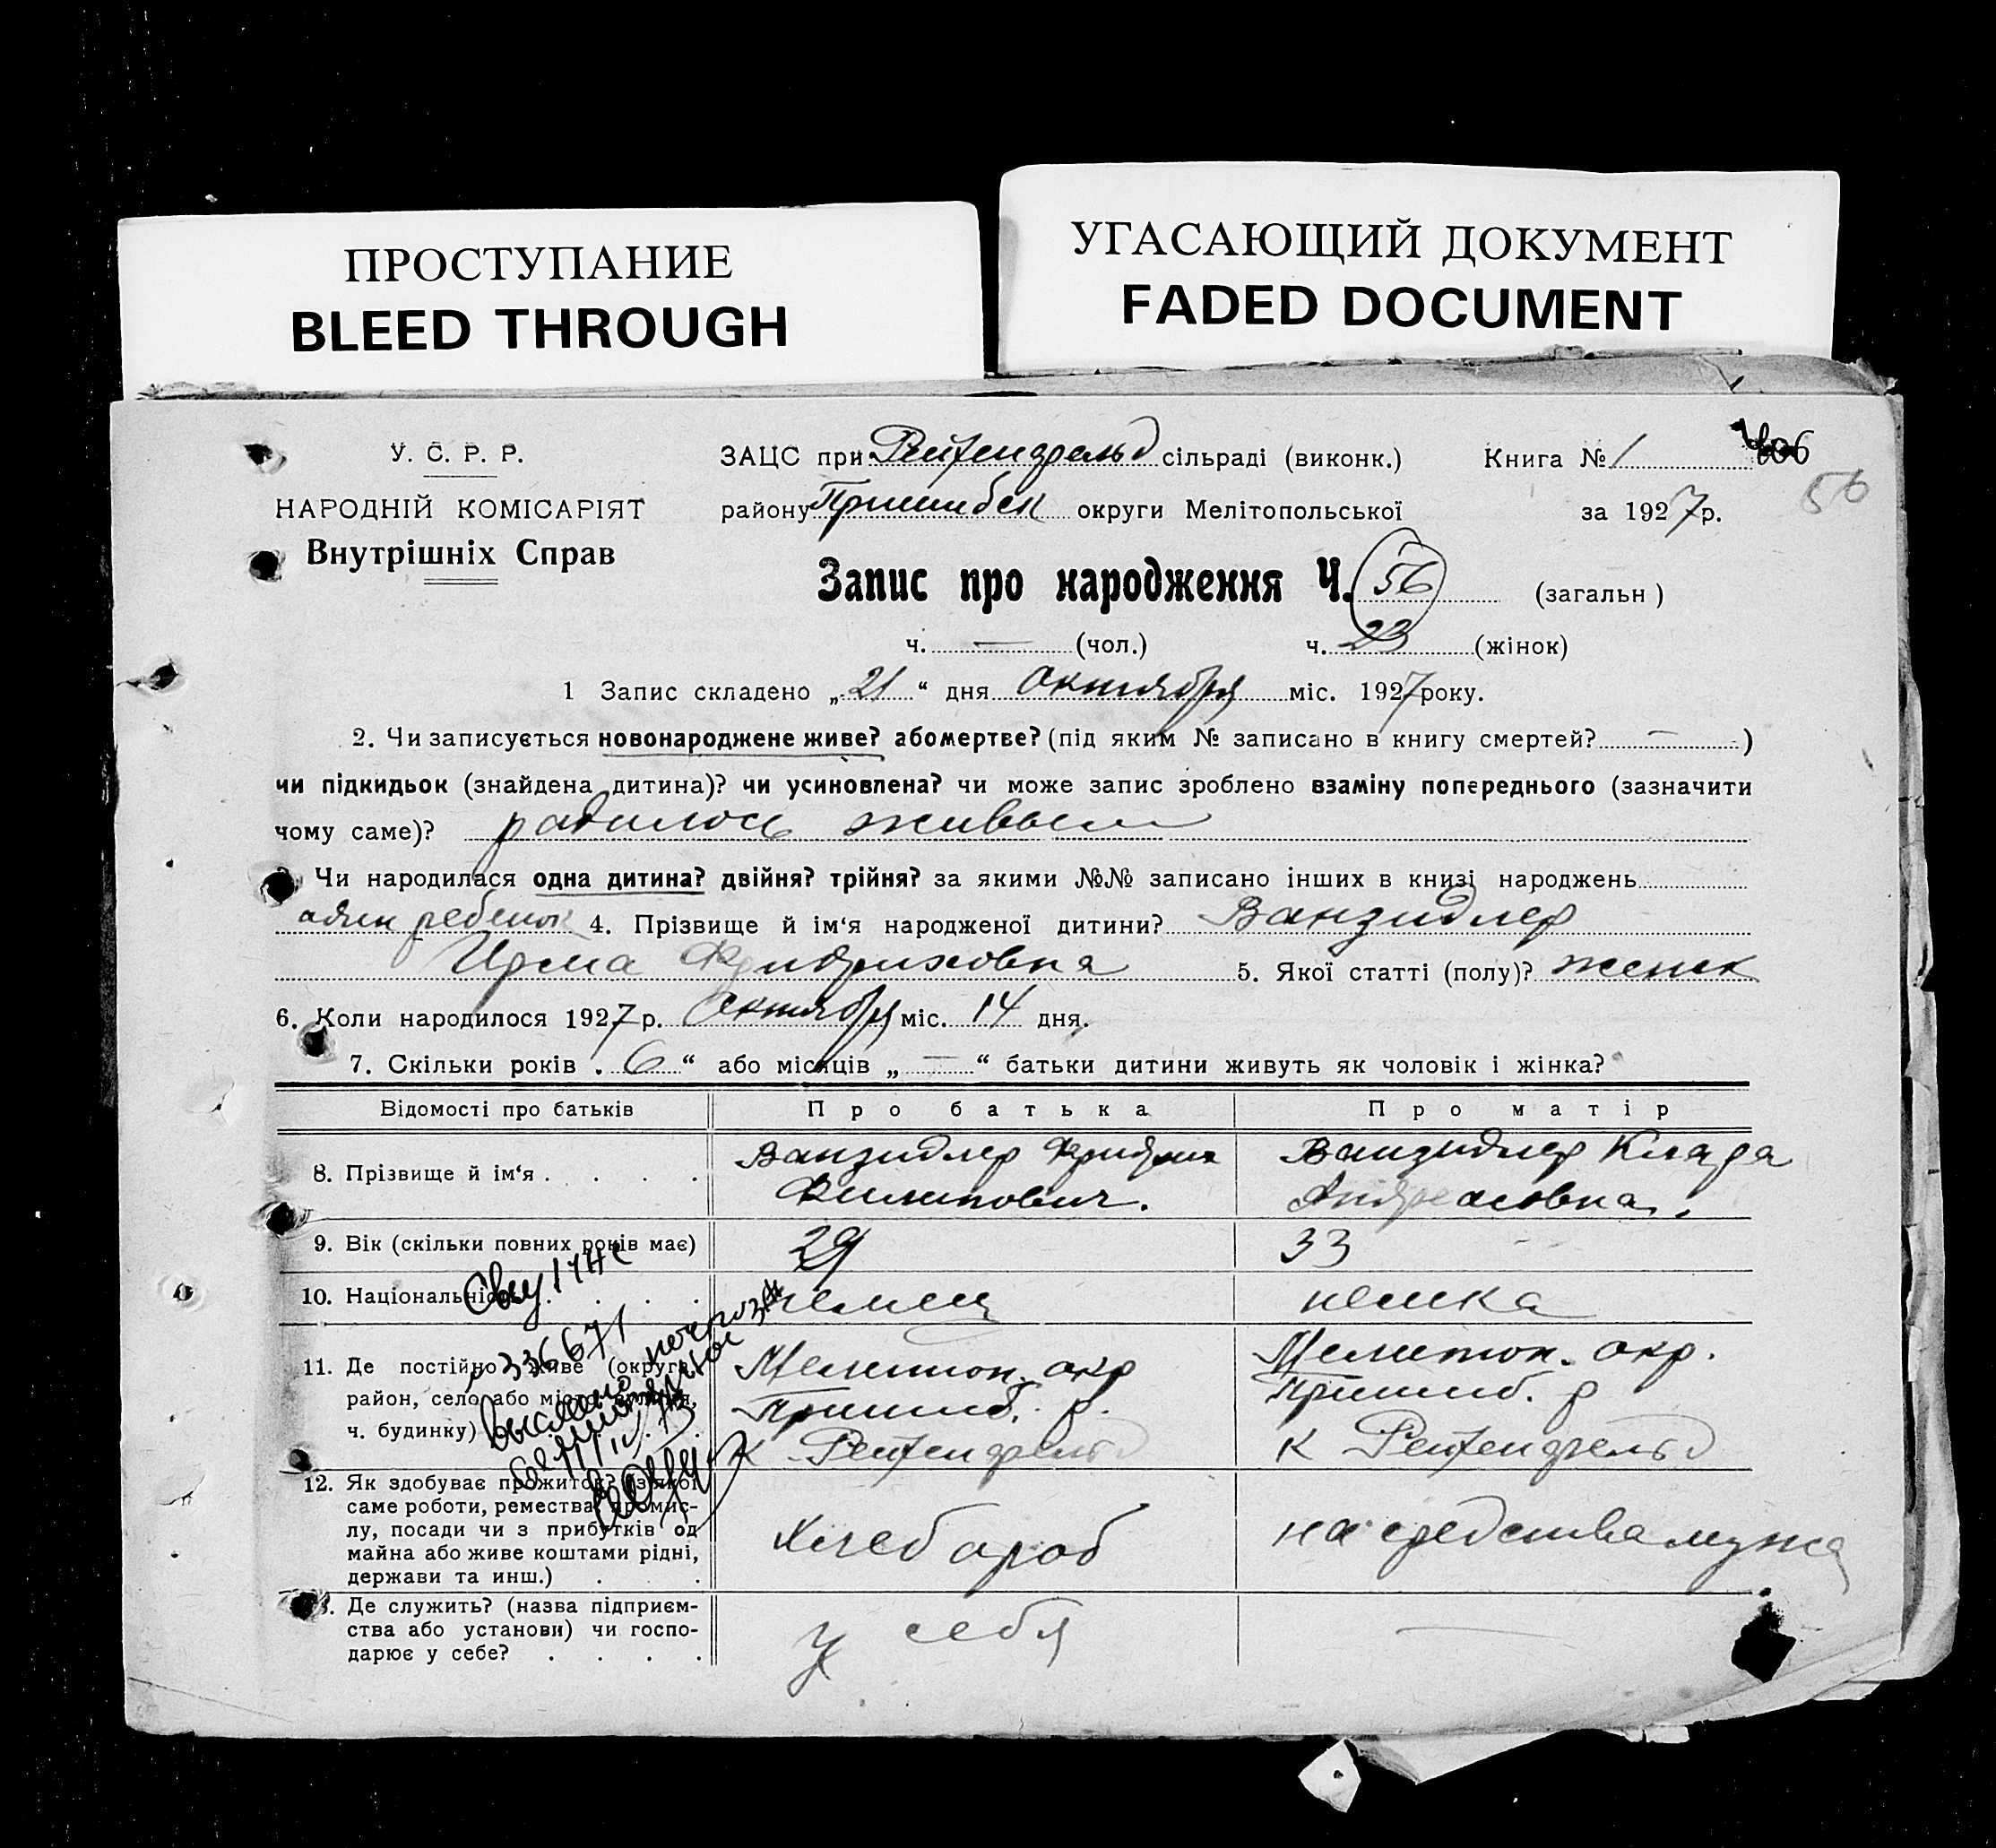 ПРОСТУПАНИЕ
BLEED THROUGH
УГАСАЮЩИЙ ДОКУМЕНТ
FADED DOCUMENT
У. С. Р. Р.
НАРОДНІЙ КОМІСАРІЯТ
Внутрішніх Справ
ЗАЦС при Рейхенфельд сільраді (виконк.) Книга № 1
району Пришибск округи Мелітопольської за 1927 р.
56
Запис про народження Ч. 56 (загальн)
ч. — (чол.) ч. 23 (жінок)
1 Запис складено „21“ дня октября міс. 1927 року.
2. Чи записується новонароджене живе? або мертве? (під яким № записано в книгу смертей? — )
чи підкидьок (знайдена дитина)? чи усиновлена? чи може запис зроблено взаміну попереднього (зазначити
чому саме)? родилось живым
Чи народилася одна дитина? двійня? трійня? за якими №№ записано інших в книзі народжень
один ребенок 4. Прізвище й ім‘я народженої дитини? Ванзидлер
Ирма Фридриховна 5. Якої статті (полу)? женск
6. Коли народилося 1927 р. октября міс. 14 дня.
7. Скільки років „6“ або місяців „—“ батьки дитини живуть як чоловік і жінка?
Відомості про батьків Про батька Про матір
8. Прізвище й ім‘я . . . . Ванзидлер Фридрих Филипович. Ванзидлер Клара Андреасовна.
9. Вік (скільки повних років має) 29 33
10. Національність . . . . немец немка
11. Де постійно живе (округа, район, село або місто, вулиця, ч. будинку) Мелитоп. окр Пришиб. р. к Рейхенфельд Мелитоп. окр. Пришиб. р к Рейхенфельд
336671
12. Як здобуває прожиток? (з якої саме роботи, ремества, промислу, посади чи з прибутків од майна або живе коштами рідні, держави та инш.) . . Хлебороб на средства мужа
. Де служить? (назва підприємства або установи) чи господарює у себе? . . . . у себя —